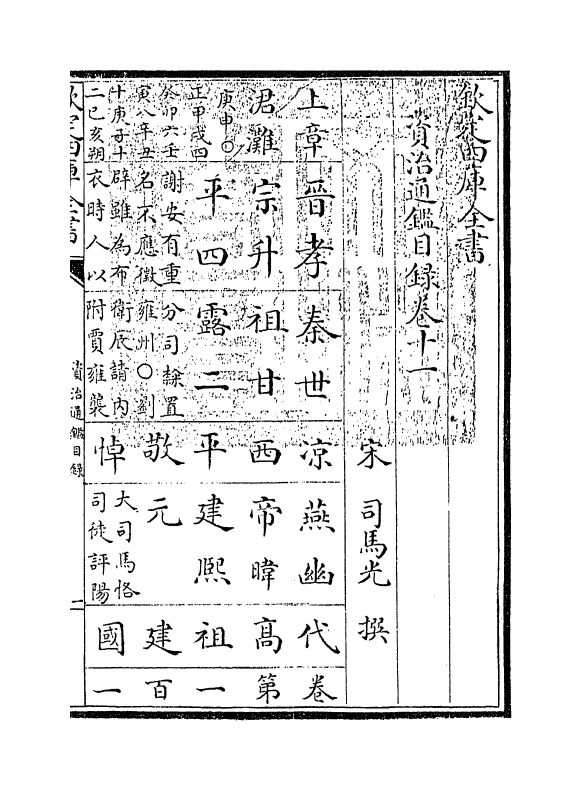 欽定四庫全書
資治通鑑目錄卷十一
宋 司馬光 撰
上章 晉孝 秦世 凉 燕幽 代 卷
涒灘 宗升 祖甘 西 帝暐 高 第
庚申○
正甲戌四
平四 露二 平 建熙 祖 一
癸卯六壬
寅八辛丑
謝安有重
名不應徵
分司隸置
雍州○劉
敬 元 建 百
十庚子十
二己亥朔
辟雖為布
衣時人以
衛辰請内
附賈雍襲
悼
大司馬恪
司徒評陽
國 一
欽定四庫全書
資治通鑑目錄
二